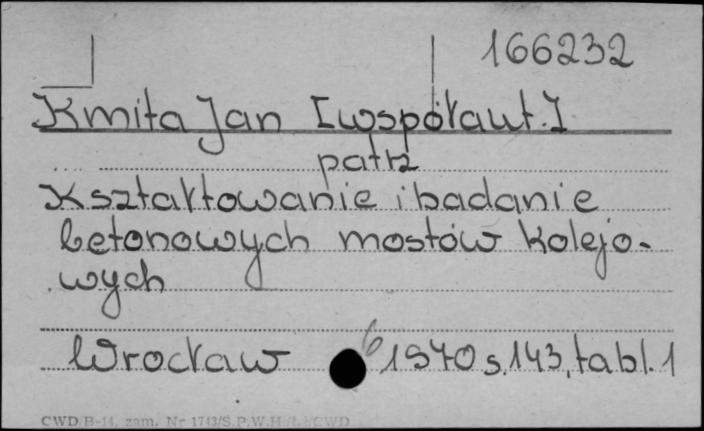 166232
Kmita Jan [współaut.]
patrz
Kształtowanie i badanie
betonowych mostów kolejo-
wych
Wrocław 1970 s. 143, tabl. 1
CWD/B-14, zam. Nr 1743/S.P.W.H.